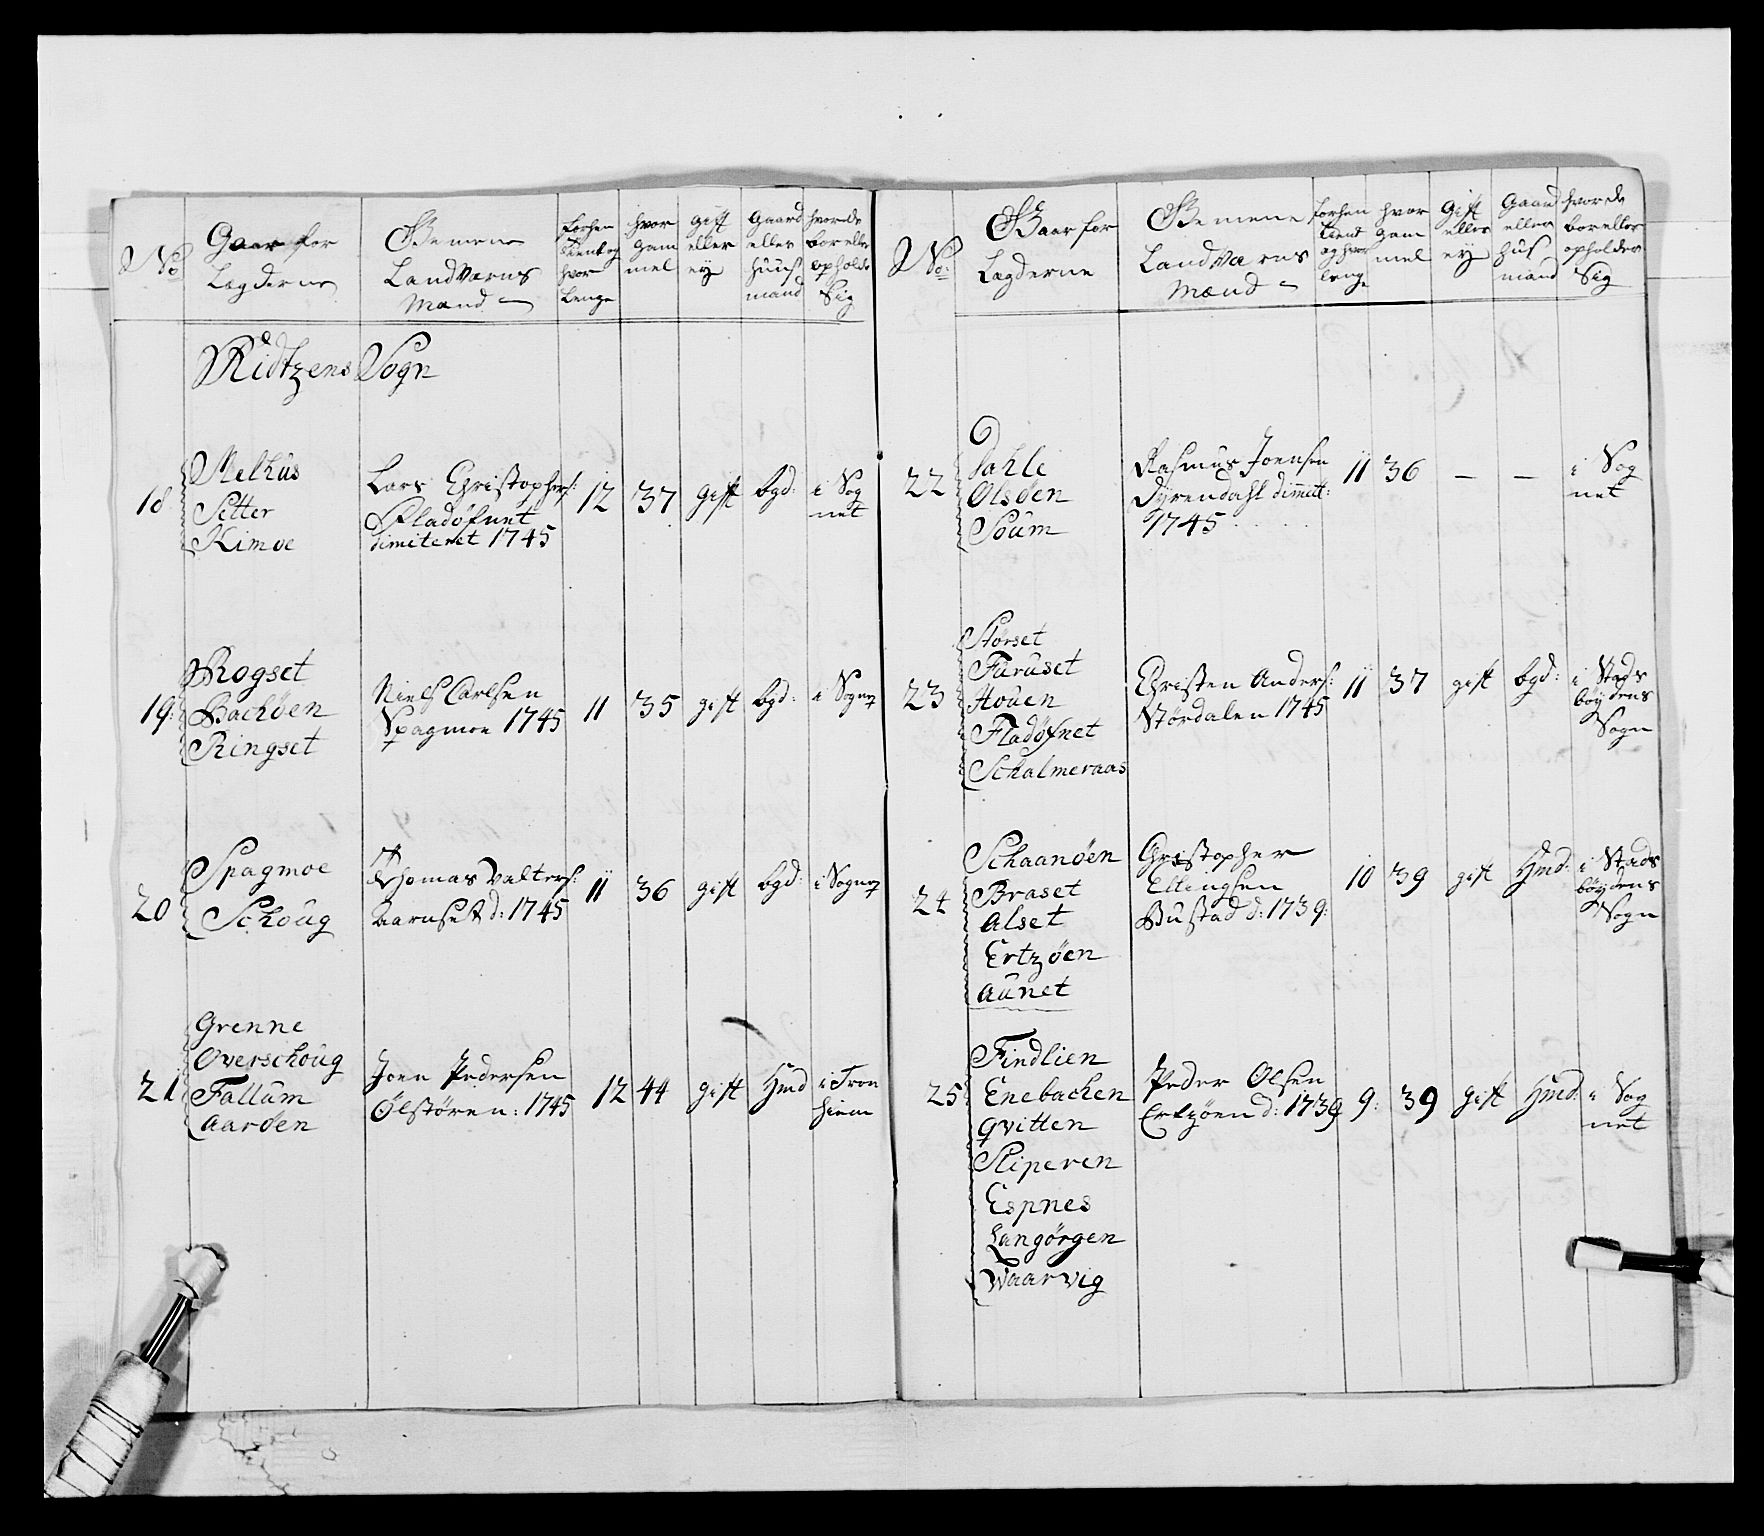 No
Gaar for
Lægderne
Gemene
Land Værns
Mænd
forhen
tient og
hvor
Lenge
hvor
gam
mel
gift
eller
ey
Gaard
eller
huus
mand
hvor de
bor eller
opholde
Sig
Ridtzens Sogn
18
Melhus
Setter
Kimoe
Lars Christophers:
Fladøfnet
dimiteret 1745
12
37
gift
bgd:
i Sog
net
19:
Rogset
Bachøen
Ringset
Niels Carlsen
Spagmoe 1745
11
35
gift
bgd:
i Sogn
20
Spagmoe
Schoug
Thomas Valters:
Aarnset d: 1745
11
36
gift
bgd:
i Sogn
21
Grenne
Overschoug
Fallum
Aarden
Joen Pedersen
Ølstören: 1745
12
44
gift
Hmd
i Tron
hiem
No:
Gaar for
Lægderne
Gemene
Land Værns
Mænd
forhen
tient
og hvor
lenge
hvor
gam
mel
Gift
eller
ey
Gaard
eller
hus
mand
hvor de
bor eller
opholder
Sig
22
Dahle
Olsøen
Soum
Rasmus Joensen
Dyrendahl dimitt:
1745
11
36
—
—
i Sog
net
23
Storset
Furuset
Houen
Fladøfnet
Schalmeraas
Christen Anders:
Stordalen 1745
11
37
gift
bgd:
i Stads
böydens
Sogn
24
Schaanøen
Braset
Alset
Ertzøen
Aunet
Christopher
Eltingsen
Bustad d: 1739:
10
39
gift
Hmd:
i Stads
böydens
Sogn
25
Findlien
Enebachen
Qvitten
Sliperen
Espnes
Langørgen
Waarvig
Peder Olsen
Ertzøen d: 1739
9:
39
gift
Hmd:
i Sog
net